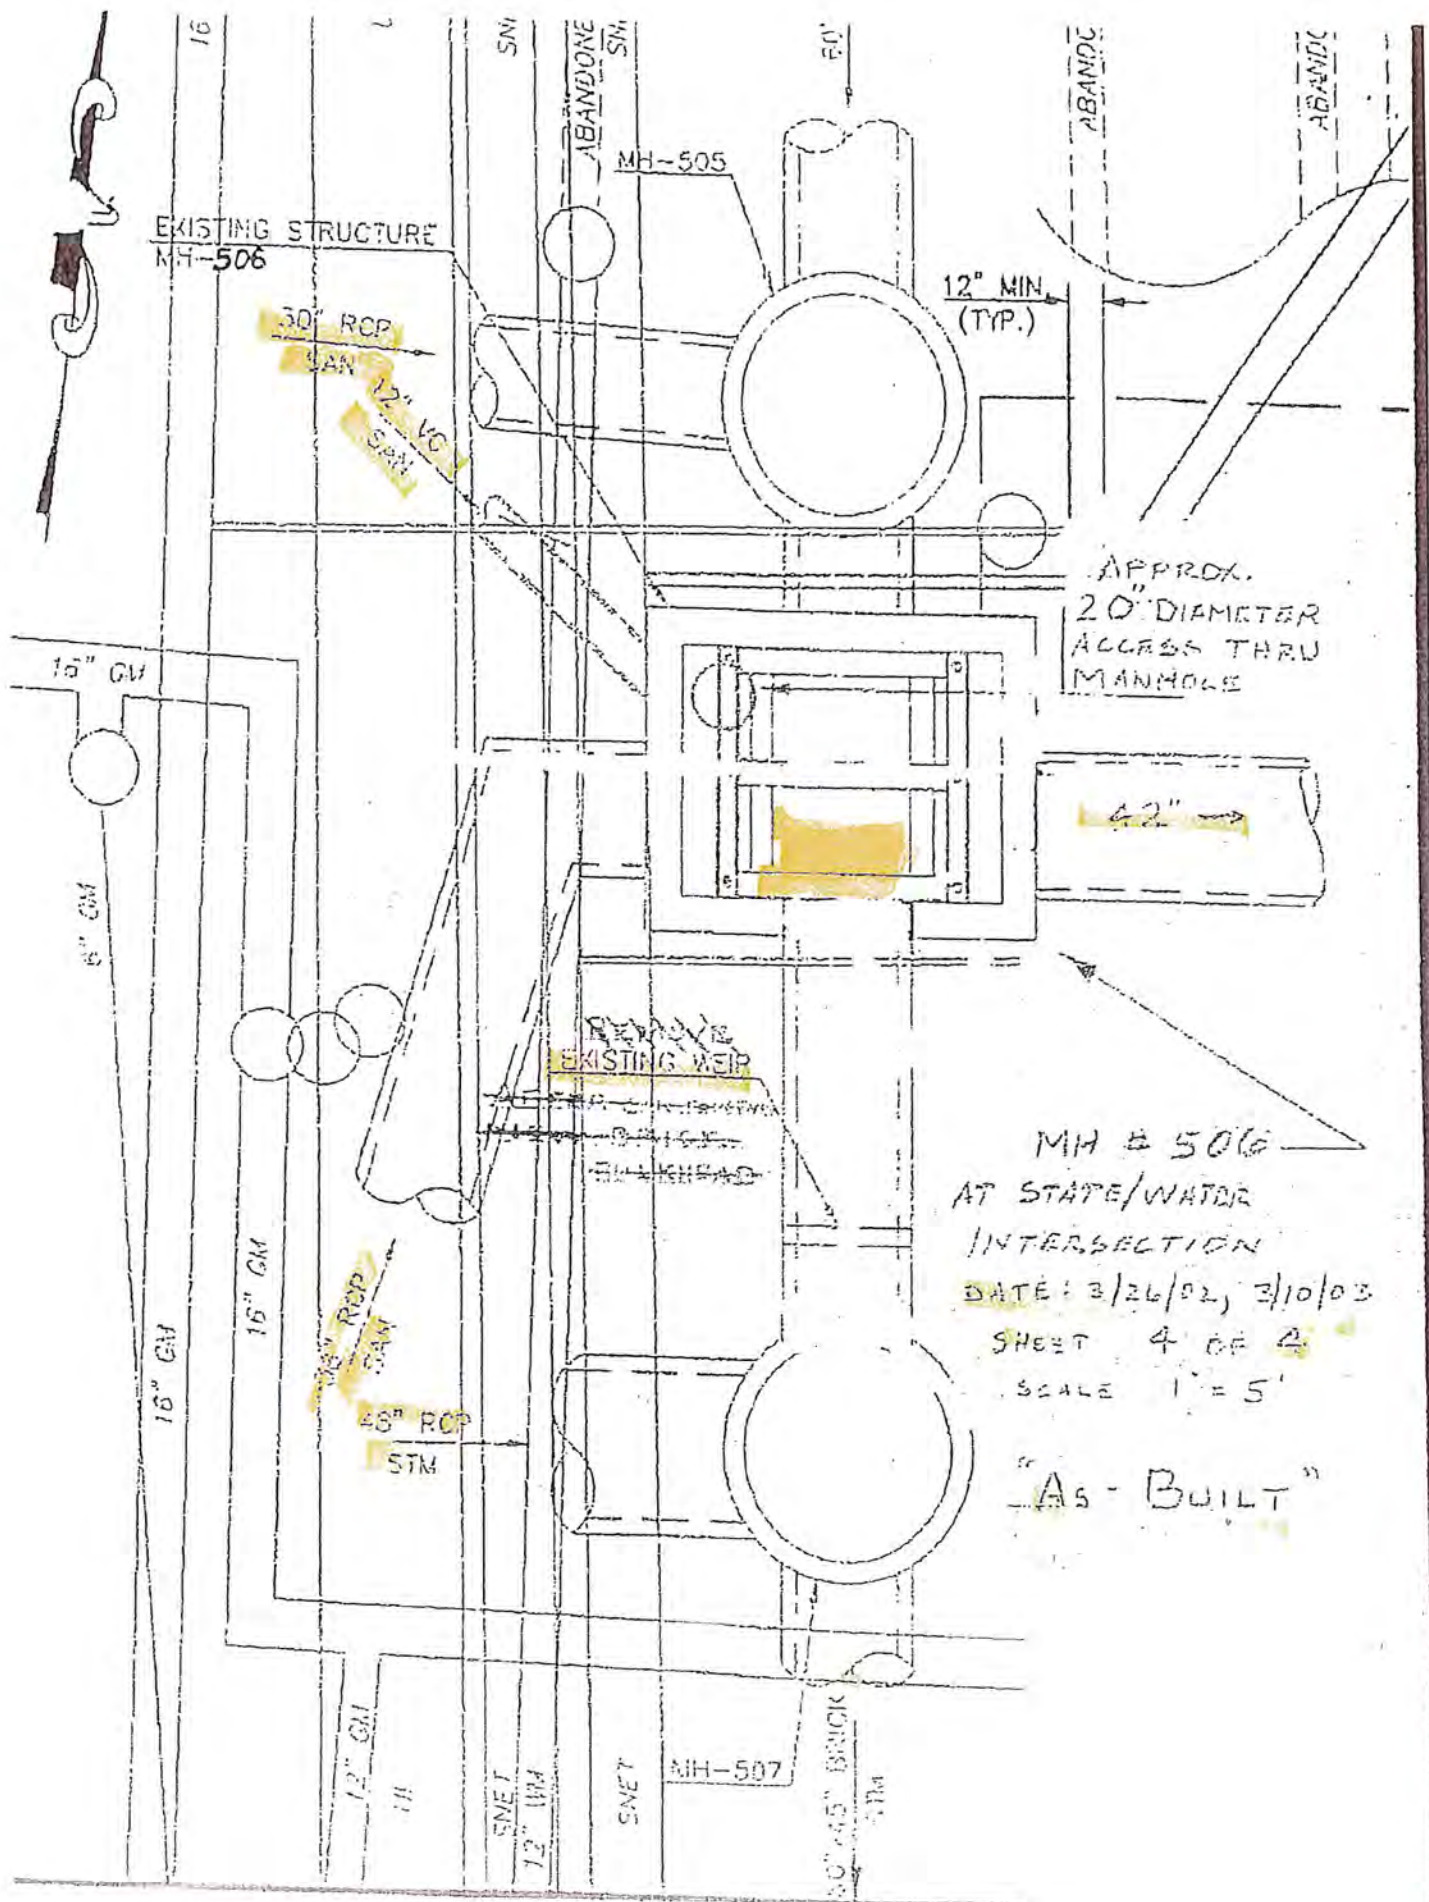 16
SN
ABANDONE
SN
ABANDO
ABANDO
MH-505
EXISTING STRUCTURE
MH-506
12" MIN.
(TYP.)
30" RCP
SAN
12" VC
SAN
APPROX.
20" DIAMETER
ACCESS THRU
MANHOLE
16" GM
42"
8" GM
REMOVE
EXISTING WEIR
BULKHEAD
MH # 506
AT STATE/WATER
INTERSECTION
DATE: 3/26/02, 3/10/03
SHEET 4 OF 4
SCALE 1" = 5'
"AS-BUILT"
16" GM
16" GM
RCP
SAN
48" RCP
STM
12" GM
SNET
12" WM
SNET
MH-507
BRICK
STM